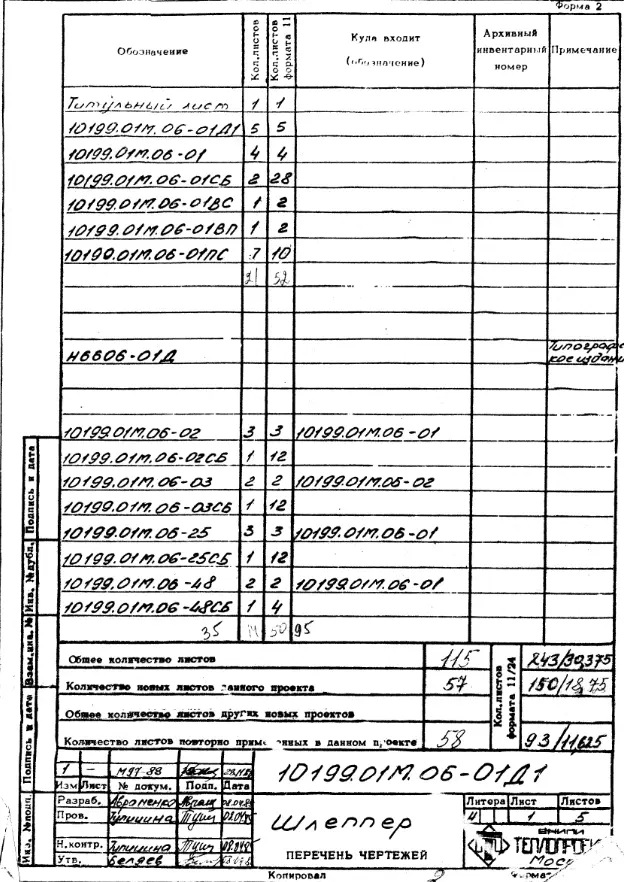 Форма 2
Обозначение Кол.листов Кол.листов формата 11 Куда входит (обозначение) Архивный инвентарный номер Примечание
Титульный лист 1 1
10199.01М.06-01Д1 5 5
10199.01М.06-01 4 4
10199.01М.06-01СБ 2 28
10199.01М.06-01ВС 1 2
10199.01М.06-01ВП 1 2
10199.01М.06-01ПС 7 10
21 52
Н6606-01Д Типографское издание
10199.01М.06-02 3 3 10199.01М.06-01
10199.01М.06-02СБ 1 12
10199.01М.06-03 2 2 10199.01М.06-02
10199.01М.06-03СБ 1 12
10199.01М.06-25 3 3 10199.01М.06-01
10199.01М.06-25СБ 1 12
10199.01М.06-48 2 2 10199.01М.06-01
10199.01М.06-48СБ 1 4
35 14 50 95
Общее количество листов 115 Кол.листов формата 11/24 243/30,375
Количество новых листов данного проекта 57 150/18,75
Общее количество листов других новых проектов
Количество листов повторно примененных в данном проекте 58 93/11,625
Инв. №подл. Подпись и дата Взам.инв. № Инв. №дубл. Подпись и дата
1 – М97-88
Изм Лист № докум. Подп. Дата
10199.01М.06-01Д1
Разраб. Авраменко
Пров. Тупицина
Н.контр. Тупицина
Утв. Беляев
Шлеппер
ПЕРЕЧЕНЬ ЧЕРТЕЖЕЙ
Литера Лист Листов
И 1 5
ВНИПИ
ТЕПЛОПРОЕК
Моск
Копировал
Формат